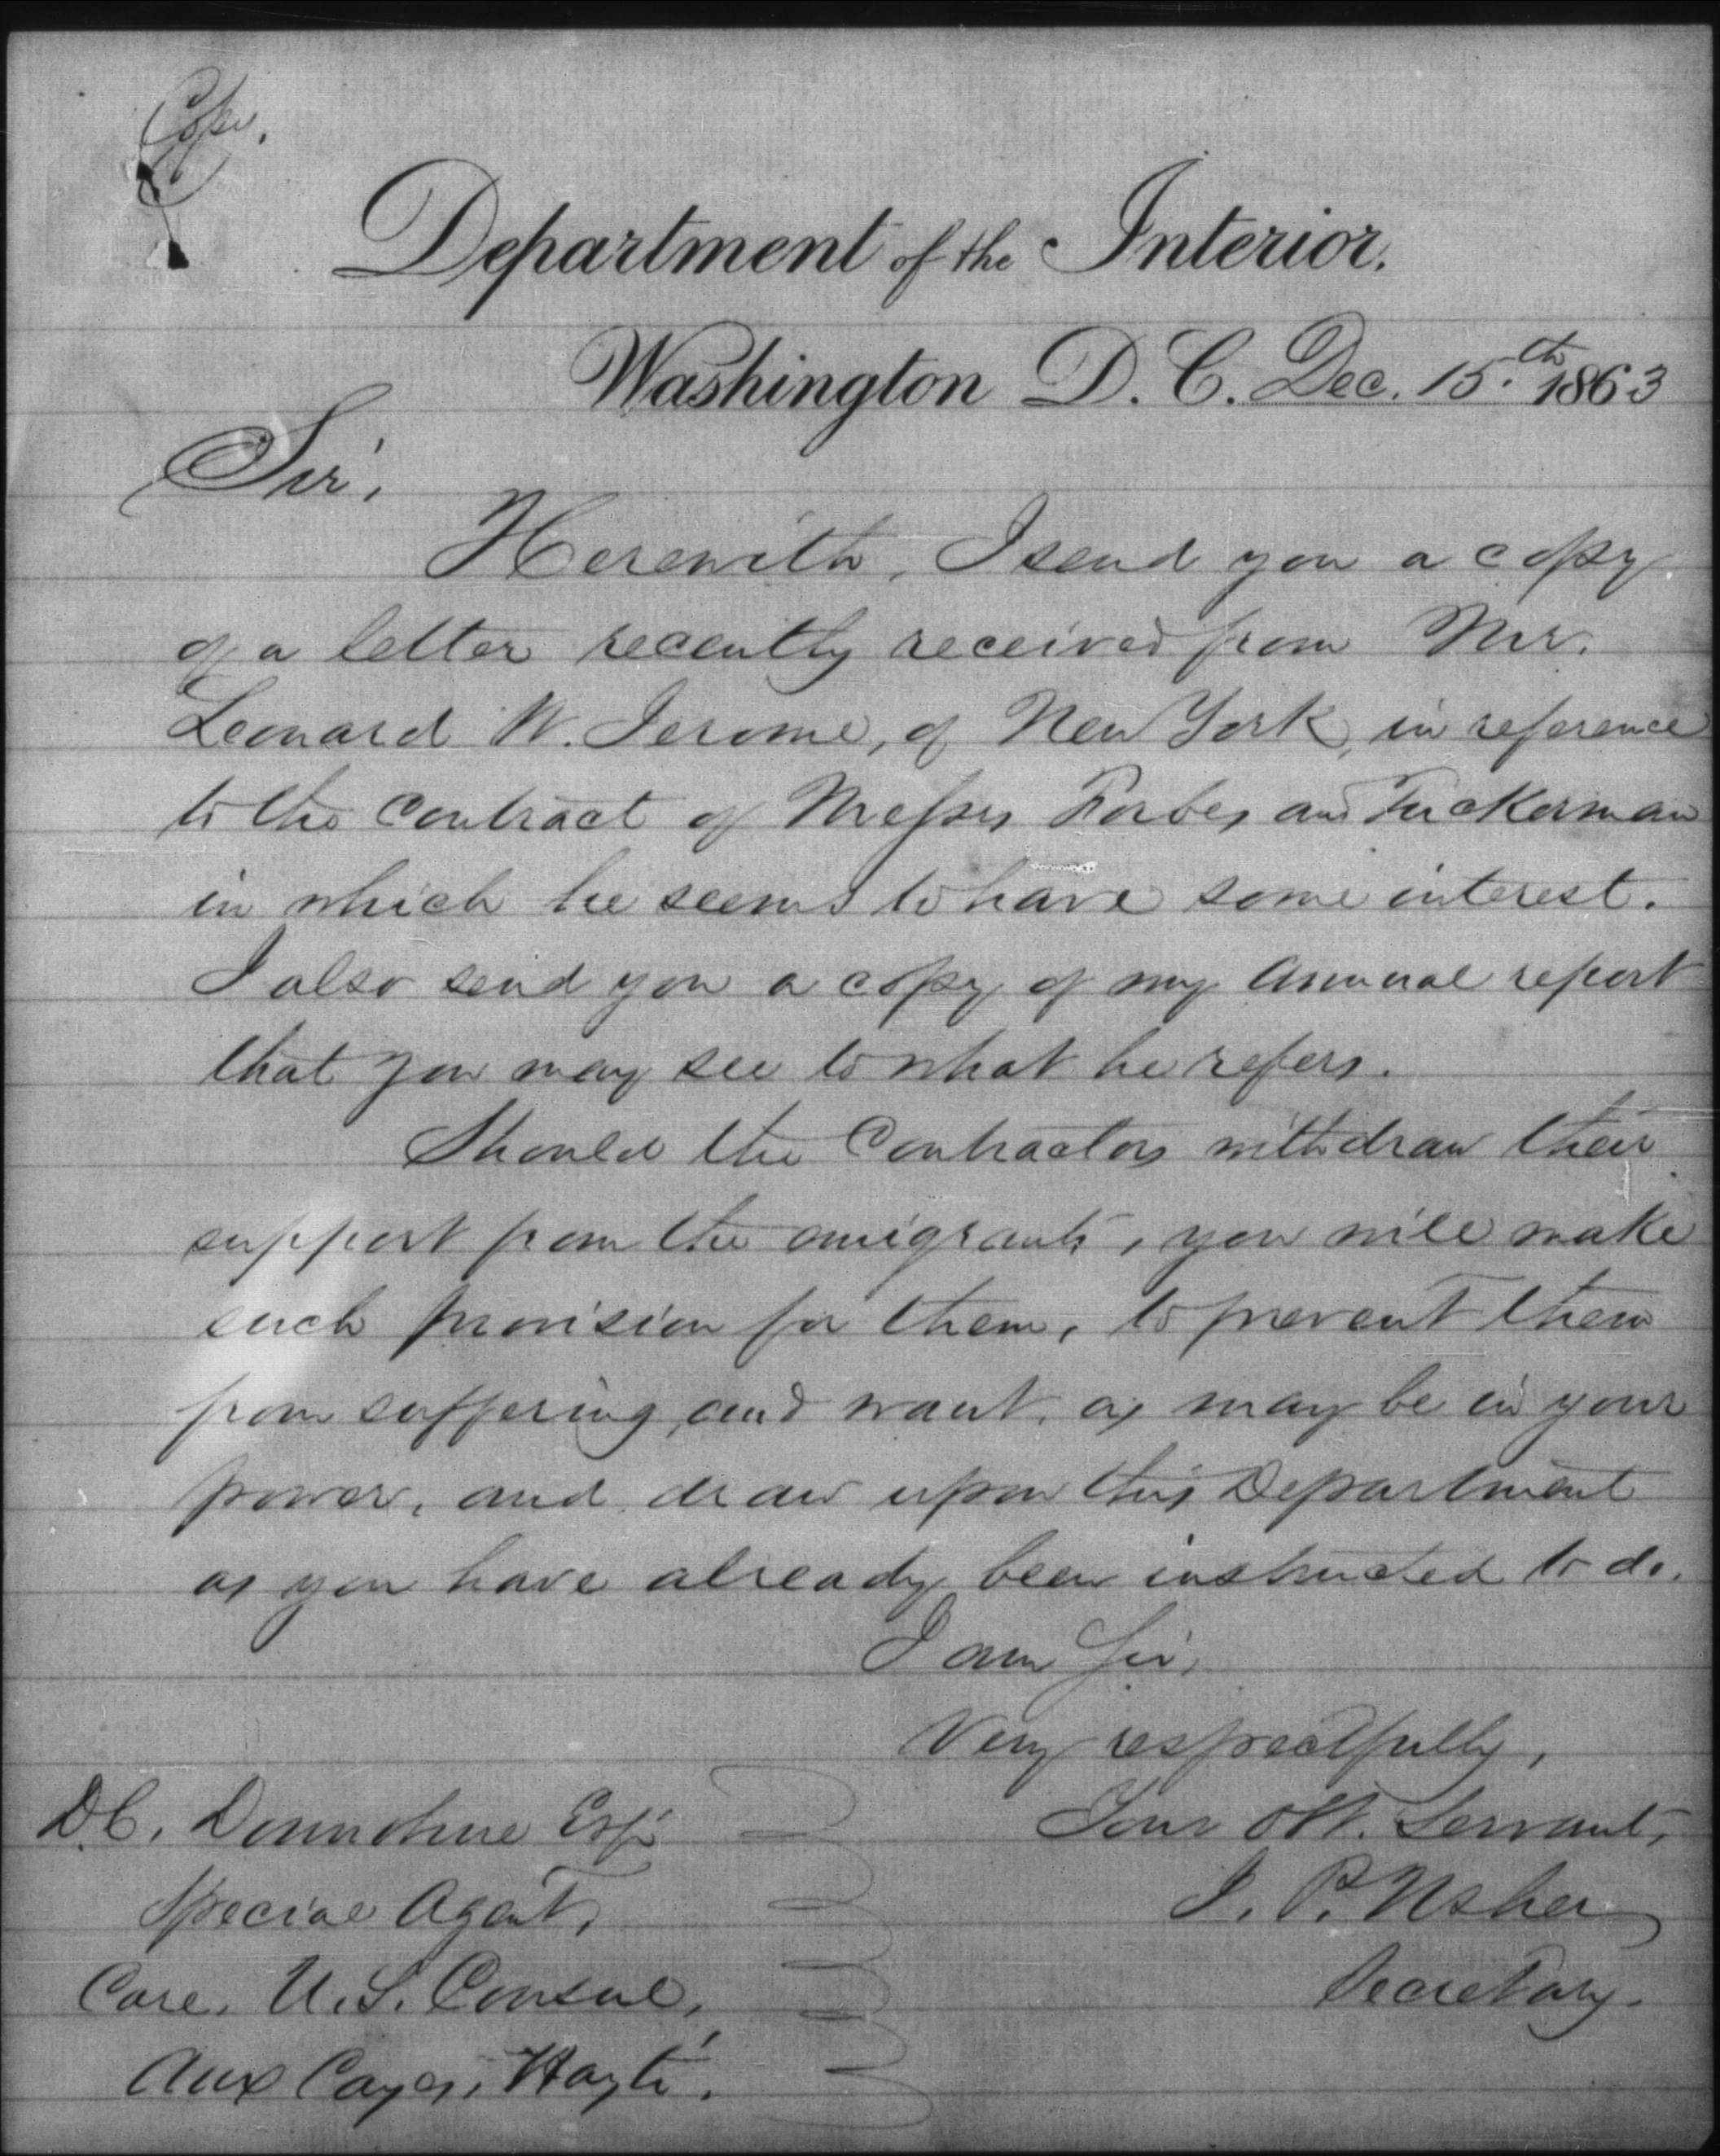 Copy.
Department of the Interior.
Washington D. C. Dec. 15.th 1863
Sir,
Herewith, I send you a copy
of a letter recently received from Mr.
Leonard W. Jerome, of New York, in reference
to the Contract of Messrs Forbes and Tuckerman
in which he seems to have some interest.
I also send you a copy of my Annual report
that you may see to what he refers.
Should the Contractors withdraw their
support from the emigrants, you will make
such provision for them, to prevent them
from suffering, and want, as may be in your
power, and draw upon this Department
as you have already been instructed to do.
I am Sir,
Very respectfully,
Your Obt. Servant,
J. P. Usher
Secretary.
D.C. Donnohue Esq.
Special Agent,
Care, U.S. Consul,
Aux Cayes, Hayti.